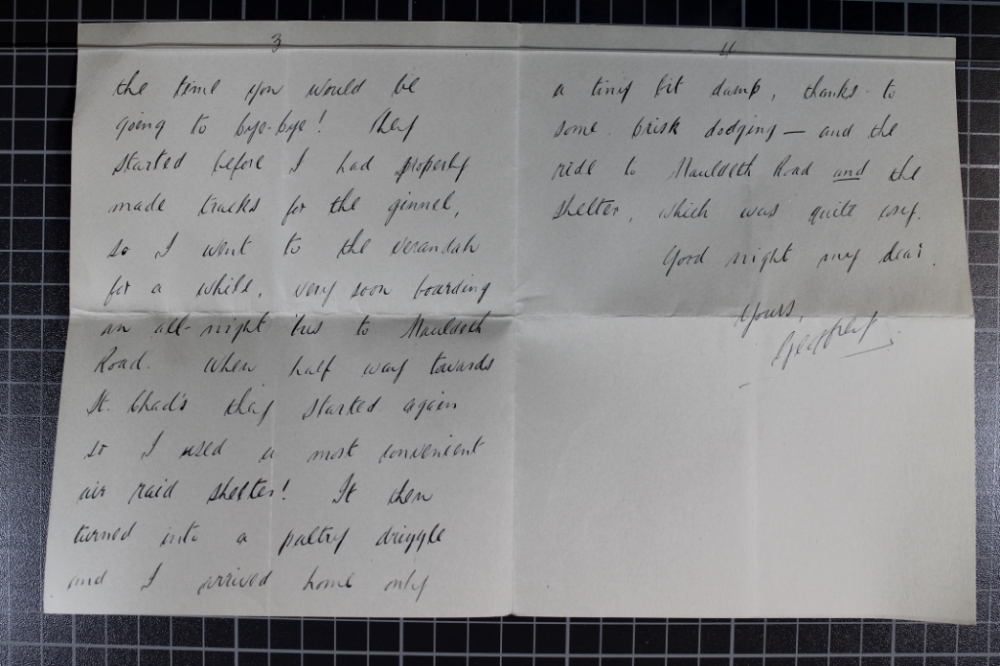 3
the time you would be
going to bye-bye! They
started before I had properly
made tracks for the ginnel,
so I went to the verandah
for a while, very soon boarding
an all-night 'bus to Mauldeth
Road. When half way towards
St. Chad's they started again
so I used a most convenient
air raid shelter! It then
turned into a paltry drizzle
and I arrived home only
4
a tiny bit damp, thanks to
some brisk dodging — and the
ride to Mauldeth Road and the
shelter, which was quite
Good night my dear.
Yours,
Geoffrey.